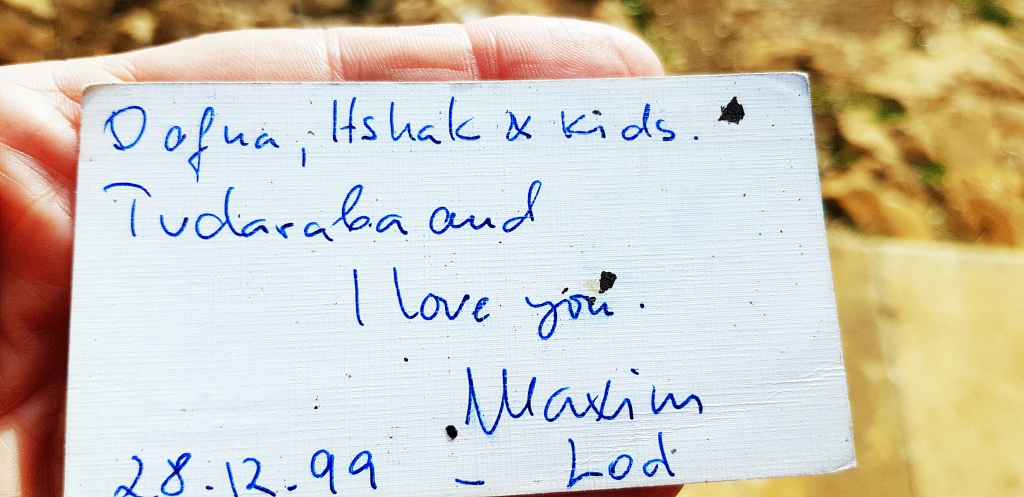 Dafna, Itshak & kids.
Tudaraba and
I love you.
Maxim
28.12.99 - Lod